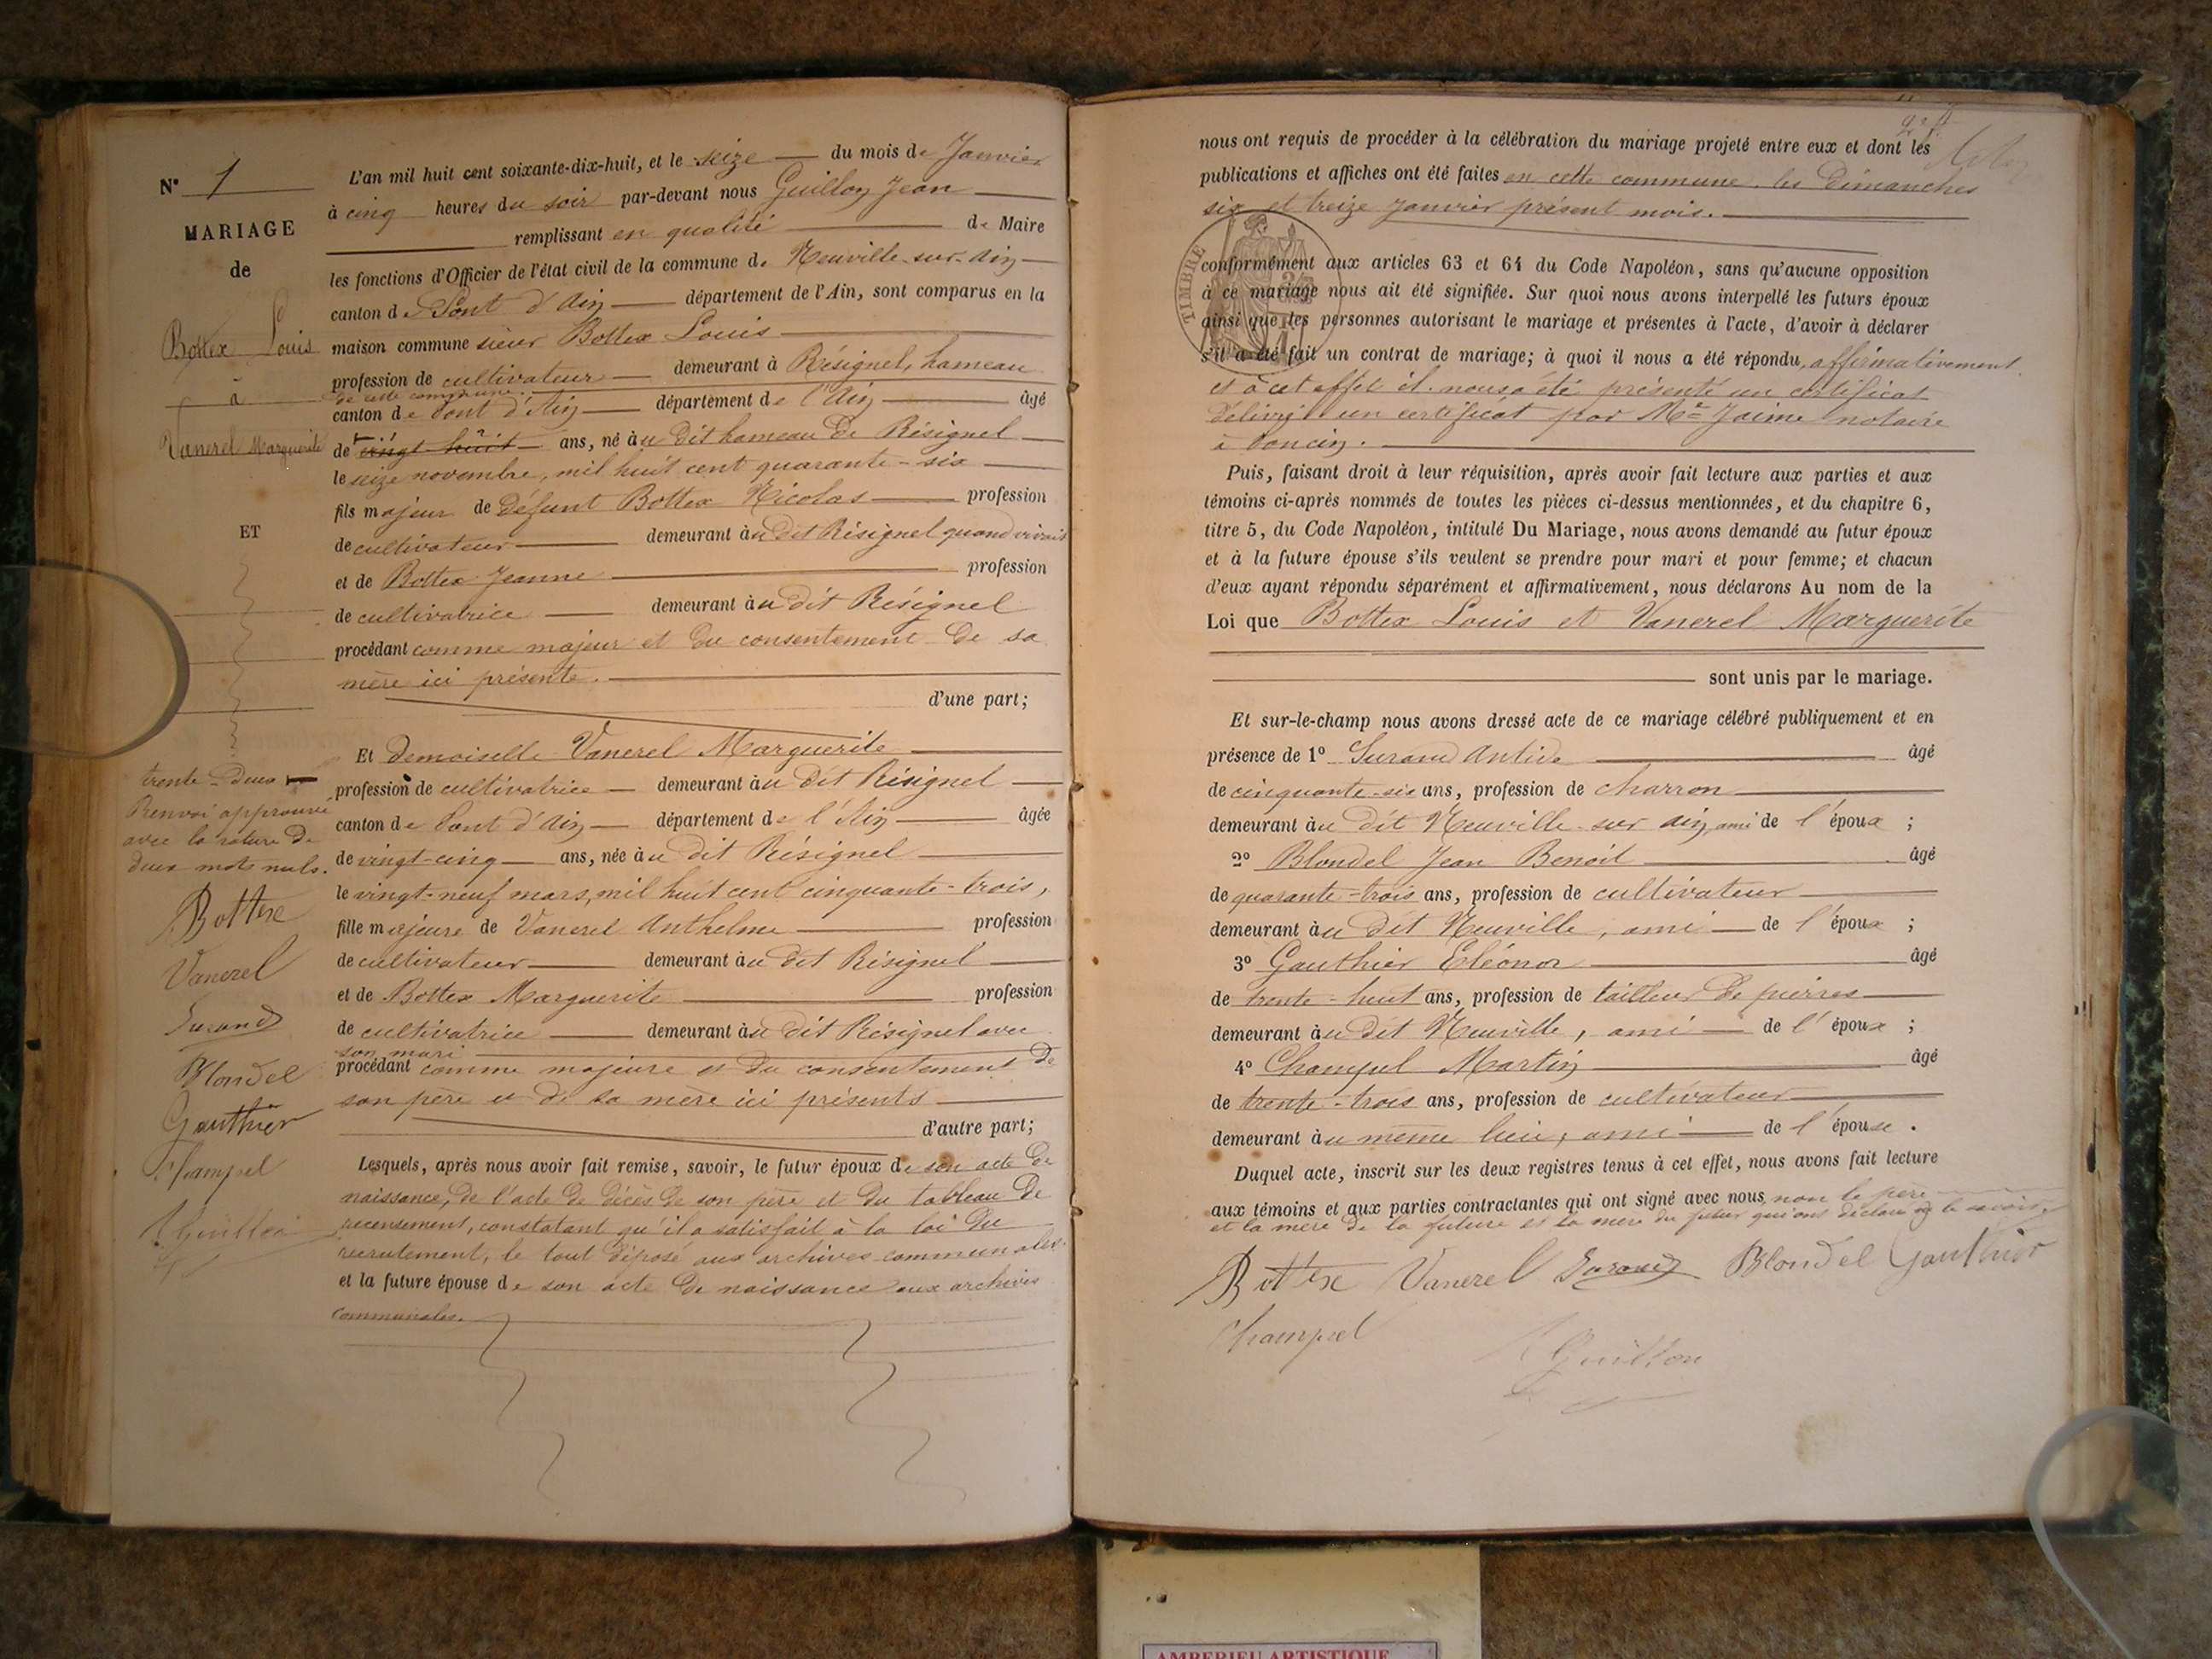 N° 1
MARIAGE
de
Bottex Louis
à
Vanerel Marguerite
ET
trente-deux
Renvoi approuvé
avec la rature de
deux mots nuls.
Bottex
Vanerel
Durand
Blondel
Gauthier
Champel
Guillon
L'an mil huit cent soixante-dix-huit, et le seize du mois de Janvier
à cinq heures du soir par-devant nous Guillon Jean
remplissant en qualité de Maire
les fonctions d'Officier de l'état civil de la commune de Neuville-sur-Ain
canton de Pont d'Ain département de l'Ain, sont comparus en la
maison commune sieur Bottex Louis
profession de cultivateur demeurant à Résignel, hameau
de cette commune.
canton de Pont d'Ain département de l'Ain âgé
de vingt-huit ans, né au dit hameau de Résignel
le seize novembre, mil huit cent quarante-six
fils majeur de défunt Bottex Nicolas profession
de cultivateur demeurant au dit Résignel quand vivait
et de Bottex Jeanne profession
de cultivatrice demeurant au dit Résignel
procédant comme majeur et du consentement de sa
mère ici présente.
d'une part;
Et demoiselle Vanerel Marguerite
profession de cultivatrice demeurant au dit Résignel
canton de Pont d'Ain département de l'Ain âgée
de vingt-cinq ans, née au dit Résignel
le vingt-neuf mars, mil huit cent cinquante-trois,
fille majeure de Vanerel Anthelme profession
de cultivateur demeurant au dit Résignel
et de Bottex Marguerite profession
de cultivatrice demeurant au dit Résignel avec
son mari
procédant comme majeure et du consentement de
son père et de sa mère ici présents
d'autre part;
Lesquels, après nous avoir fait remise, savoir, le futur époux de son acte de
naissance, de l'acte de décès de son père et du tableau de
recensement, constatant qu'il a satisfait à la loi du
recrutement, le tout déposé aux archives communales.
et la future épouse de son acte de naissance aux archives
communales.
nous ont requis de procéder à la célébration du mariage projeté entre eux et dont les
publications et affiches ont été faites en cette commune les Dimanches
six et treize Janvier présent mois.
TIMBRE
conformément aux articles 63 et 64 du Code Napoléon, sans qu'aucune opposition
à ce mariage nous ait été signifiée. Sur quoi nous avons interpellé les futurs époux
ainsi que les personnes autorisant le mariage et présentes à l'acte, d'avoir à déclarer
s'il a été fait un contrat de mariage; à quoi il nous a été répondu, affirmativement.
et à cet effet il nous a été présenté un certificat
délivré un certificat par Me Jaime notaire
à Poncin.
Puis, faisant droit à leur réquisition, après avoir fait lecture aux parties et aux
témoins ci-après nommés de toutes les pièces ci-dessus mentionnées, et du chapitre 6,
titre 5, du Code Napoléon, intitulé Du Mariage, nous avons demandé au futur époux
et à la future épouse s'ils veulent se prendre pour mari et pour femme; et chacun
d'eux ayant répondu séparément et affirmativement, nous déclarons Au nom de la
Loi que Bottex Louis et Vanerel Marguerite
sont unis par le mariage.
Et sur-le-champ nous avons dressé acte de ce mariage célébré publiquement et en
présence de 1° Durand Antide âgé
de cinquante-six ans, profession de charron
demeurant au dit Neuville-sur-Ain, ami de l'époux ;
2° Blondel Jean Benoit âgé
de quarante-trois ans, profession de cultivateur
demeurant au dit Neuville, ami de l'époux ;
3° Gauthier Eléonor âgé
de trente-huit ans, profession de tailleur de pierres
demeurant au dit Neuville, ami de l'époux ;
4° Champel Martin âgé
de trente-trois ans, profession de cultivateur
demeurant au même lieu, ami de l'épouse.
Duquel acte, inscrit sur les deux registres tenus à cet effet, nous avons fait lecture
aux témoins et aux parties contractantes qui ont signé avec nous, non le père
et la mère de la future et la mère du futur qui ont déclaré ne le savoir.
Bottex Vanerel Durand Blondel Gauthier
Champel
Guillon
AMBERIEU ARTISTIQUE